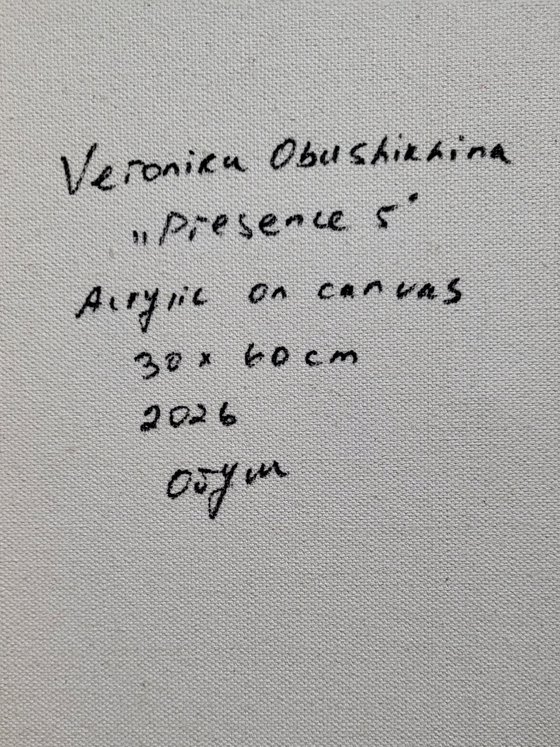 Veronika Obushikhina
„Presence 5"
Acrylic on canvas
30 x 60 cm
2026
Обуш